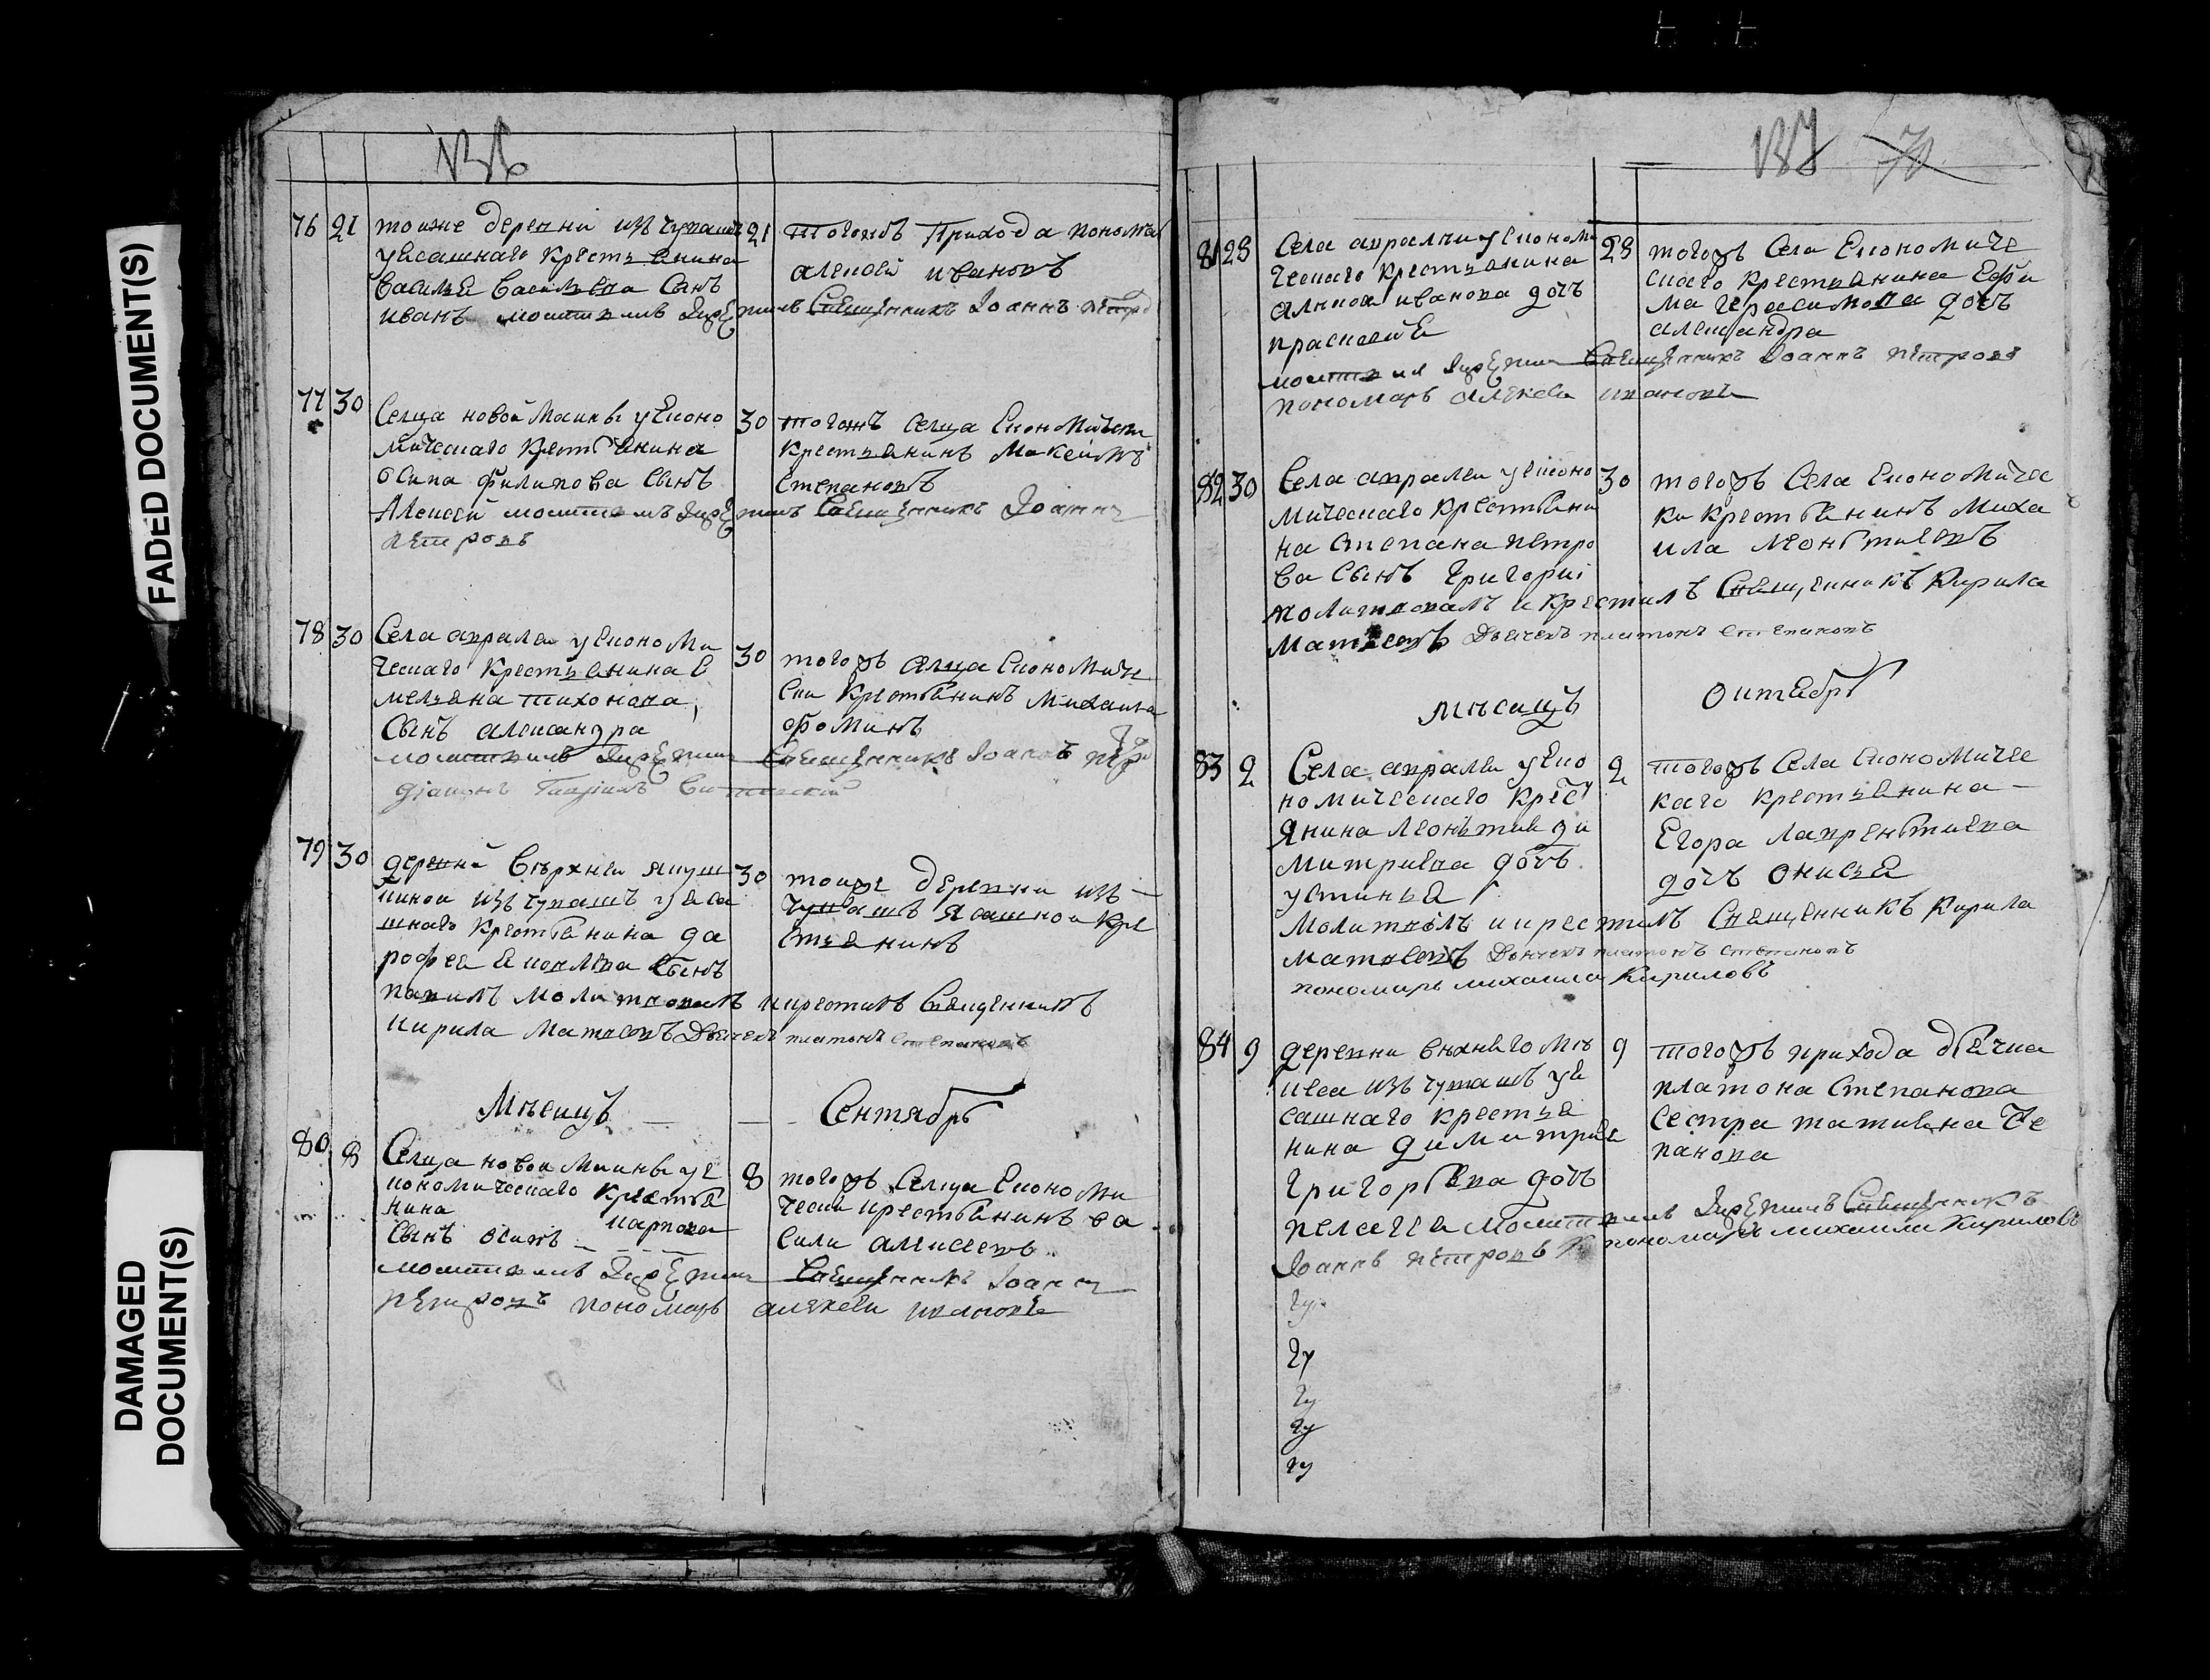 FADED DOCUMENT(S)
DAMAGED DOCUMENT(S)
136
76 21 тоиже деревни изъ чувашъ
уясашнаго крестьянина
Василья Васильева сынъ
иванъ молитвилъ и крестилъ Священникъ Иоаннъ петро
21 тогожъ Прихода понома
алексей ивановъ
77 30 Селца новой Маины уеконо
мическаго крестьянина
осипа филипова сынъ
Алексей молитвилъ и крестилъ Священникъ Иоаннъ
петровъ
30 тогожъ селца Економически
крестьянинъ Макей
степановъ
78 30 Села авралеи уекономи
ческаго крестьянина е
мельяна тихонова
сынъ александра
молитвилъ и крестилъ Священникъ Иоаннъ петро
дiаконъ Гаврiилъ
30 тогожъ селца Економиче
ски крестьянинъ Михаила
фоминъ
79 30 деревни верхнеи якуш
киной изъ чувашъ уяса
шнаго крестьянина до
рофея яковлева сынъ
павилъ молитвовалъ и крестилъ Священникъ
кирила Матвеевъ Дьячекъ платонъ степановъ
30 тоиже деревни изъ
чувашъ ясашной кре
стьянинъ
Мѣсицъ Сентябръ
80 8 Селца новои Маины уе
кономическаго крестья
нина карпова
сынъ осипъ
молитвилъ и крестилъ Священникъ Иоаннъ
петровъ пономарь алексеи ивановъ
8 тогожъ Селца Економи
чески крестьянинъ ва
сили алексеевъ
137 70
81 23 Села авралеи уекономи
ческаго крестьянина
алексея иванова дочь
прасковья
молитвилъ и крестилъ Священникъ Иоаннъ петровъ
пономарь алексеи ивановъ
23 тогожъ Села Економиче
скаго крестьянина Ефи
ма Герасимова дочь
александра
82 30 Села авралеи уеконо
мическаго крестьяни
на степана петро
ва сынъ Григориi
молитвовалъ и крестилъ Священникъ Кирила
Матвеевъ Дьячекъ платонъ степановъ
30 тогожъ Села Економичес
ки крестьянинъ Миха
ила леонтиевъ
Мѣсицъ Октябръ
83 2 Села авралеи уеко
номическаго крест
янина леонтия ди
митриева дочь
устинья
Молитвилъ и крестилъ Священникъ Кирила
матвеевъ Дьячекъ платонъ степановъ
пономарь михаила Кириловъ
2 тогожъ Села Економичес
каго крестьянина
Егора лаврентиева
дочь онисья
84 9 деревни
изъ чувашъ уя
сашнаго крестья
нина димитрия
Григорьева дочь
пелагея молитвилъ и крестилъ Священникъ
Иоаннъ петровъ пономарь михаила Кириловъ
9 тогожъ прихода дьячка
платона степанова
сестра татияна сте
панова
чу
чу
чу
чу
чу